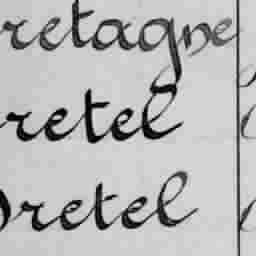 retagne
retel
Oretel